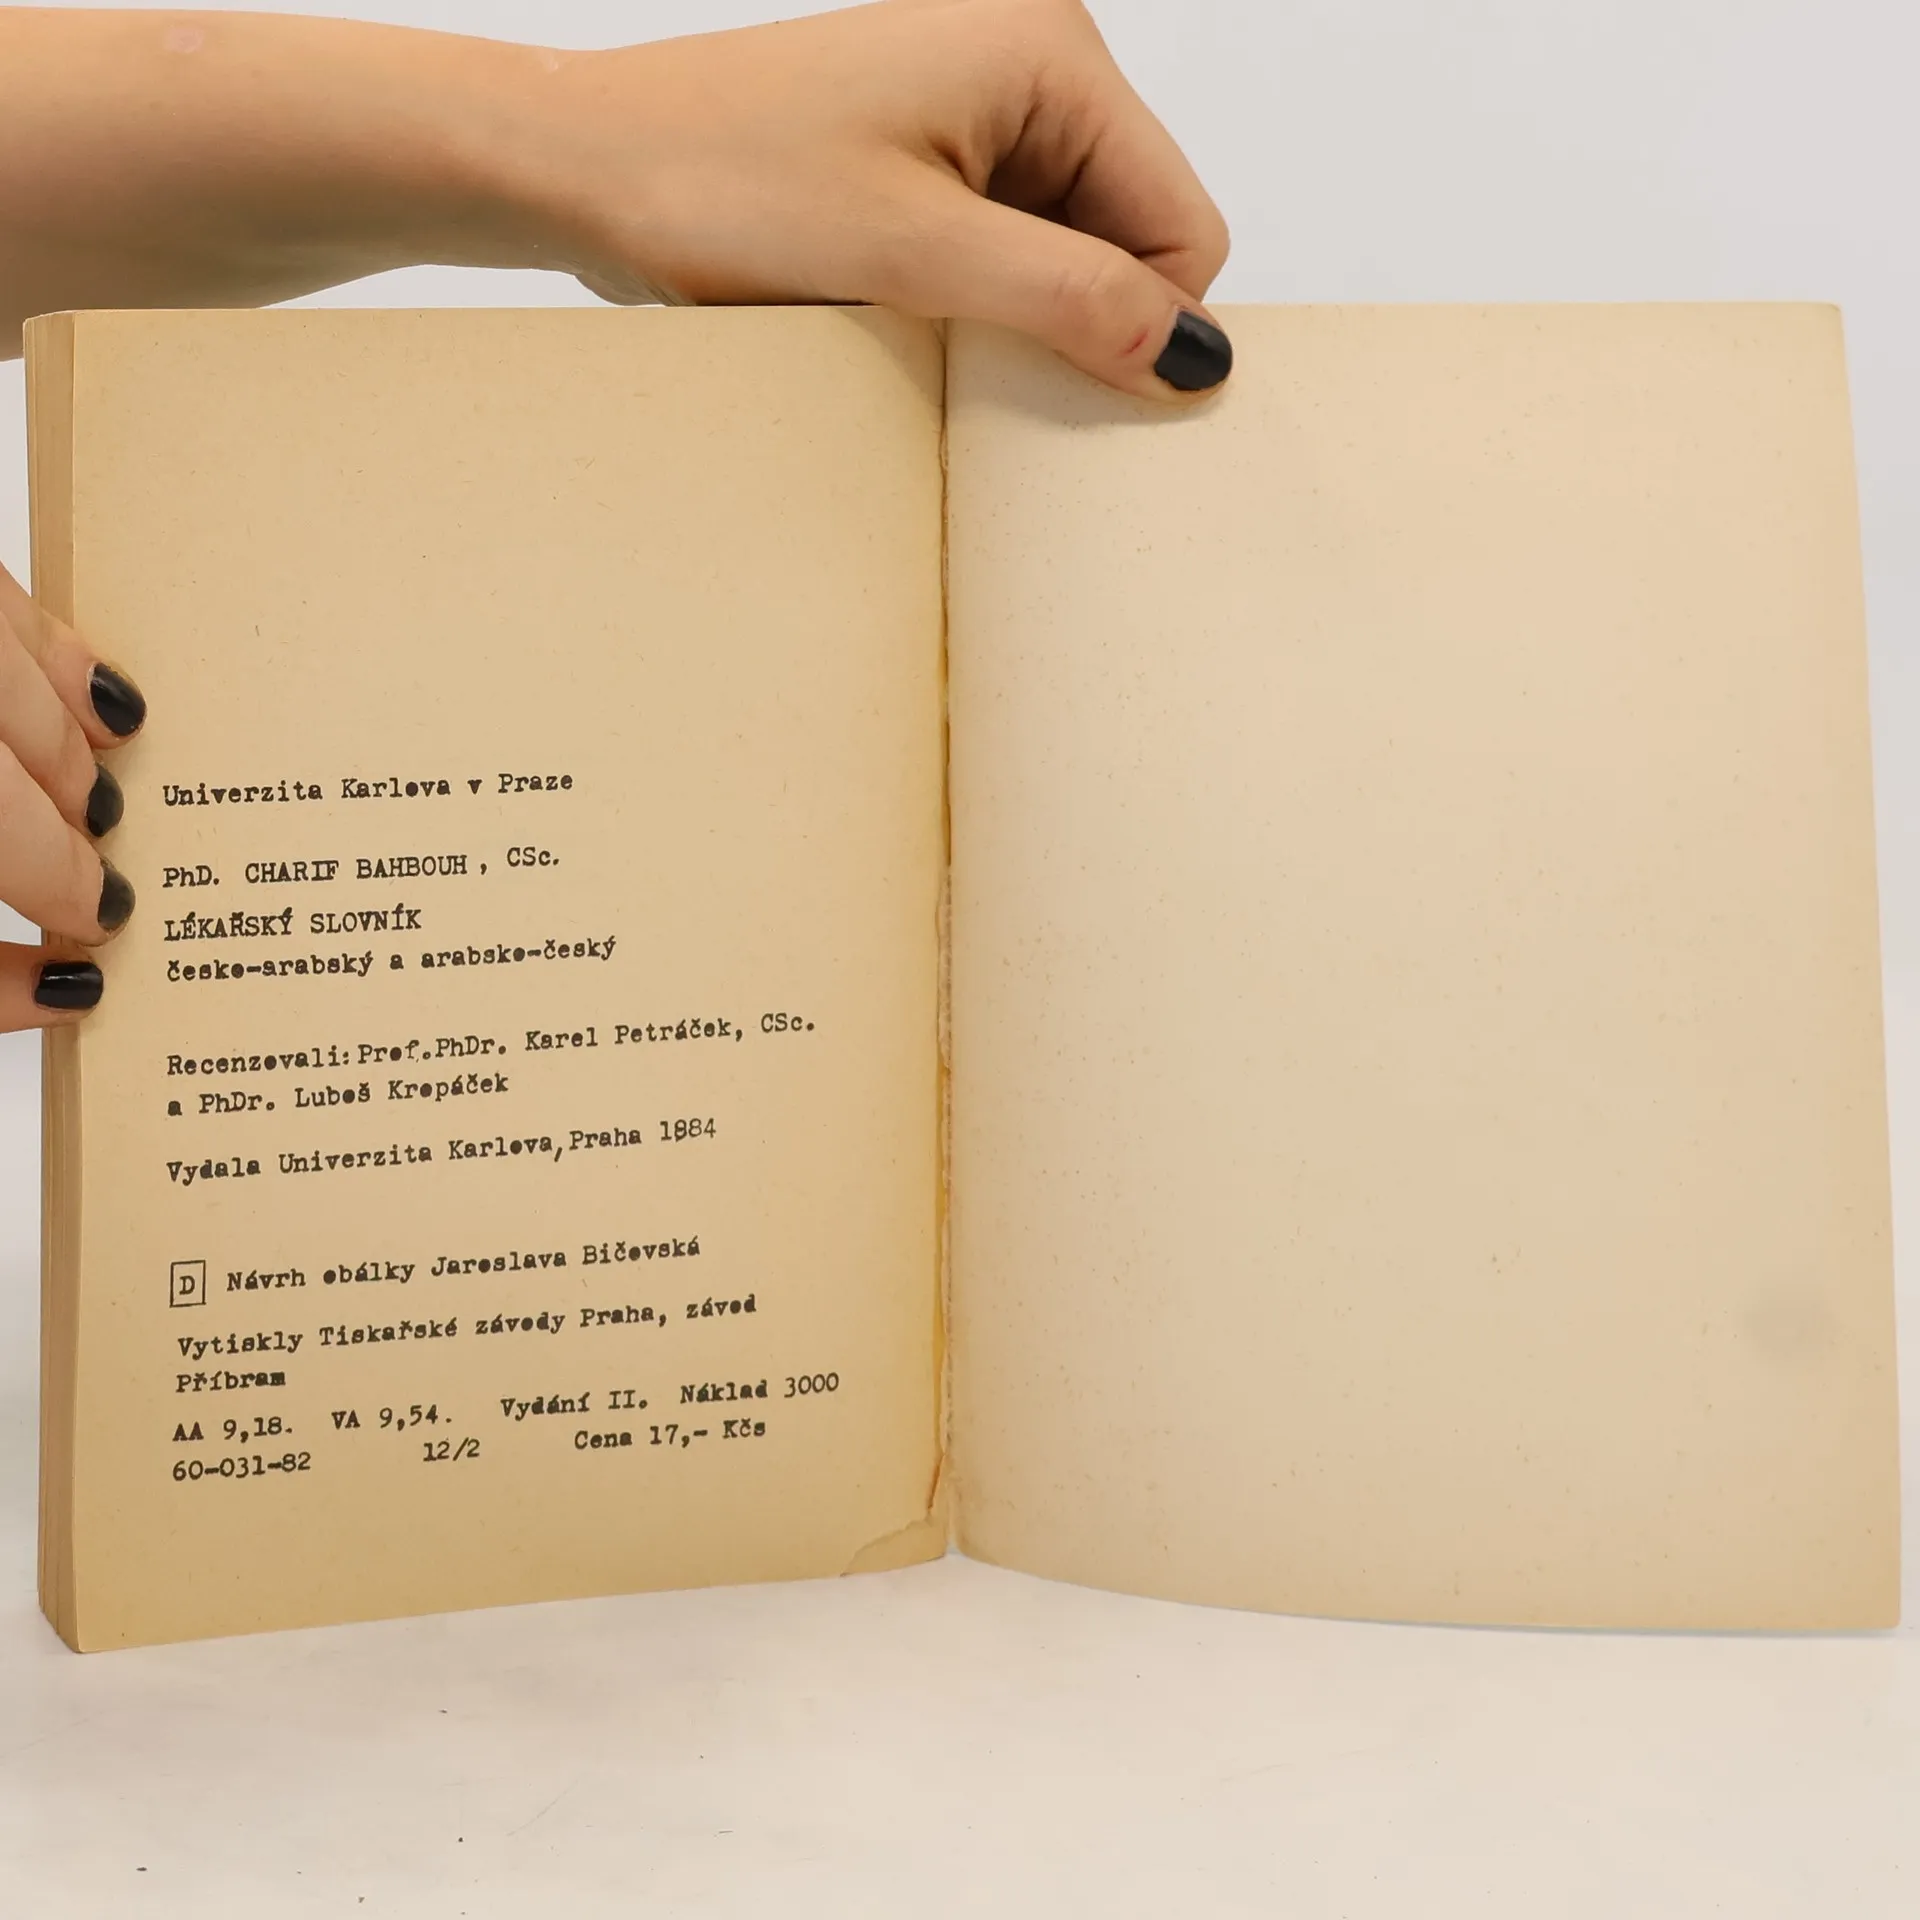 Univerzita Karlova v Praze
PhD. CHARIF BAHBOUH , CSc.
LÉKAŘSKÝ SLOVNÍK
česko-arabský a arabsko-český
Recenzovali: Prof.PhDr. Karel Petráček, CSc.
a PhDr. Luboš Kropáček
Vydala Univerzita Karlova, Praha 1884
D Návrh obálky Jaroslava Bičovská
Vytiskly Tiskařské závody Praha, závod
Příbram
AA 9,18. VA 9,54. Vydání II. Náklad 3000
60-031-82 12/2 Cena 17,- Kčs